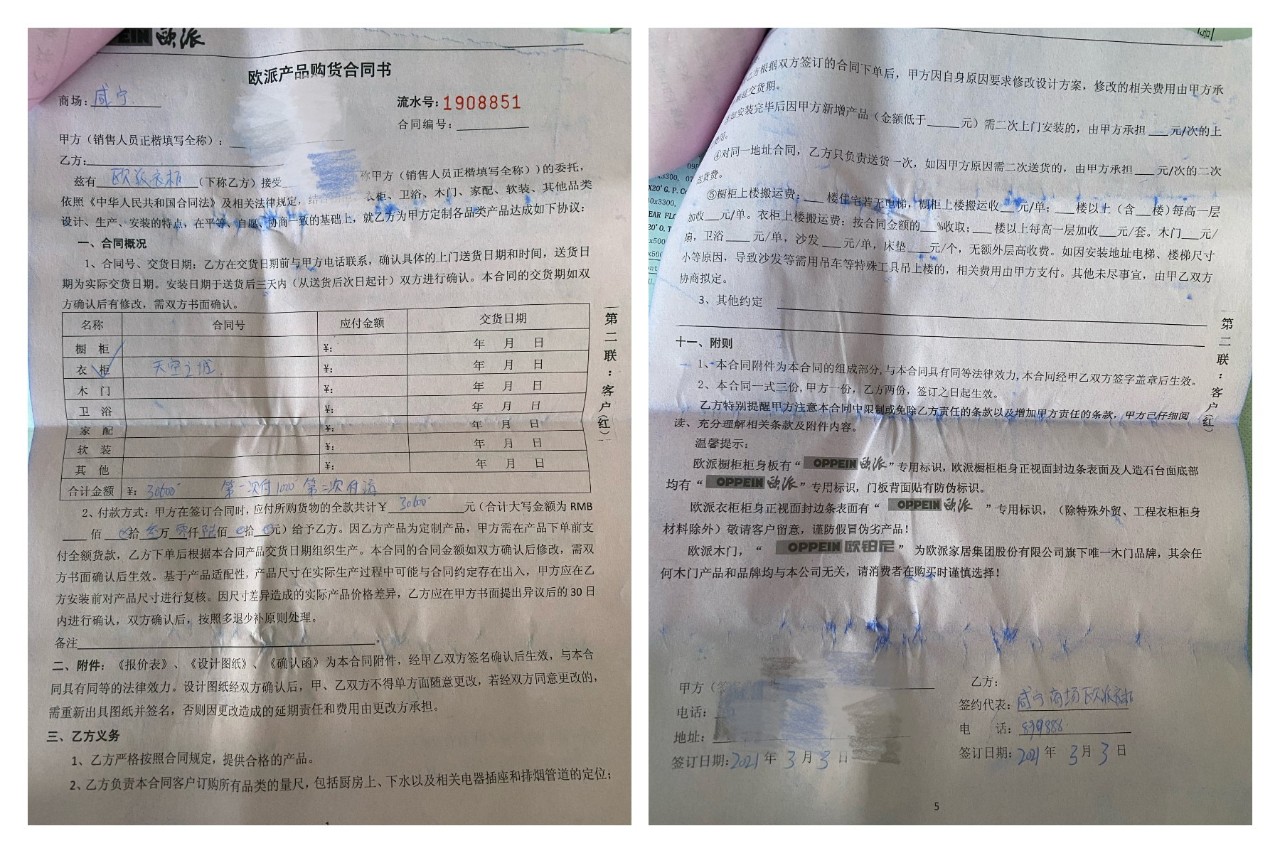 OPPEIN 欧派
欧派产品购货合同书
商场：咸宁
流水号：1908851
合同编号：
甲方（销售人员正楷填写全称）：
乙方：
兹有 欧派衣柜 （下称乙方）接受 称甲方（销售人员正楷填写全称））的委托，
依照《中华人民共和国合同法》及相关法律规定， 衣柜、卫浴、木门、家配、软装、其他品类
设计、生产、安装的特点，在平等、自愿、协商一致的基础上，就乙方为甲方定制各品类产品达成如下协议：
一、合同概况
1、合同号、交货日期：乙方在交货日期前与甲方电话联系，确认具体的上门送货日期和时间，送货日
期为实际交货日期。安装日期于送货后三天内（从送货后次日起计）双方进行确认。本合同的交货期如双
方确认后有修改，需双方书面确认。
名称 合同号 应付金额 交货日期
橱 柜 ¥： 年 月 日
衣 柜 天空之城 ¥： 年 月 日
木 门 ¥： 年 月 日
卫 浴 ¥： 年 月 日
家 配 ¥： 年 月 日
软 装 ¥： 年 月 日
其 他 ¥： 年 月 日
合计金额 ¥：30600 第一次付1000 第二次付清
2、付款方式：甲方在签订合同时，应付所购货物的全款共计¥ 30600 元（合计大写金额为 RMB
佰 拾 叁万 零仟 陆佰 拾 元）给予乙方。因乙方产品为定制产品，甲方需在产品下单前支
付全额货款，乙方下单后根据本合同产品交货日期组织生产。本合同的合同金额如双方确认后修改，需双
方书面确认后生效。基于产品适配性，产品尺寸在实际生产过程中可能与合同约定存在出入，甲方应在乙
方安装前对产品尺寸进行复核。因尺寸差异造成的实际产品价格差异，乙方应在甲方书面提出异议后的 30 日
内进行确认，双方确认后，按照多退少补原则处理。
备注
二、附件：《报价表》、《设计图纸》、《确认函》为本合同附件，经甲乙双方签名确认后生效，与本合
同具有同等的法律效力。设计图纸经双方确认后，甲、乙双方不得单方面随意更改，若经双方同意更改的，
需重新出具图纸并签名，否则因更改造成的延期责任和费用由更改方承担。
三、乙方义务
1、乙方严格按照合同规定，提供合格的产品。
2、乙方负责本合同客户订购所有品类的量尺，包括厨房上、下水以及相关电器插座和排烟管道的定位；
第二联：客户（红）
根据双方签订的合同下单后，甲方因自身原因要求修改设计方案，修改的相关费用由甲方承
交货期。
安装完毕后因甲方新增产品（金额低于 元）需二次上门安装的，由甲方承担 元/次的上
④对同一地址合同，乙方只负责送货一次，如因甲方原因需二次送货的，由甲方承担 元/次的二次
送货费。
⑤橱柜上楼搬运费： 楼住宅若无电梯，橱柜上楼搬运收 元/单； 楼以上（含 楼）每高一层
加收 元/单。衣柜上楼搬运费：按合同金额的 %收取； 楼以上每高一层加收 元/套。木门 元/
扇，卫浴 元/单，沙发 元/单，床垫 元/个，无额外层高收费。如因安装地址电梯、楼梯尺寸
小等原因，导致沙发等需用吊车等特殊工具吊上楼的，相关费用由甲方支付。其他未尽事宜，由甲乙双方
协商拟定。
3、其他约定
十一、附则
1、本合同附件为本合同的组成部分，与本合同具有同等法律效力，本合同经甲乙双方签字盖章后生效。
2、本合同一式三份，甲方一份，乙方两份，签订之日起生效。
乙方特别提醒甲方注意本合同中限制或免除乙方责任的条款以及增加甲方责任的条款，甲方已仔细阅
读、充分理解相关条款及附件内容。
温馨提示：
欧派橱柜柜身板有“ OPPEIN 欧派 ”专用标识，欧派橱柜柜身正视面封边条表面及人造石台面底部
均有“ OPPEIN 欧派 ”专用标识，门板背面贴有防伪标识。
欧派衣柜柜身正视面封边条表面有“ OPPEIN 欧派 ”专用标识，（除特殊外贸、工程衣柜柜身
材料除外）敬请客户留意，谨防假冒伪劣产品！
欧派木门，“ OPPEIN 欧铂尼 ”为欧派家居集团股份有限公司旗下唯一木门品牌，其余任
何木门产品和品牌均与本公司无关，请消费者在购买时谨慎选择！
第二联：客户（红）
甲方（
电话：
地址：
签订日期：2021年 3月 3日
乙方：
签约代表：咸宁商场欧派衣柜
电 话：
签订日期：2021年 3月 3日
5